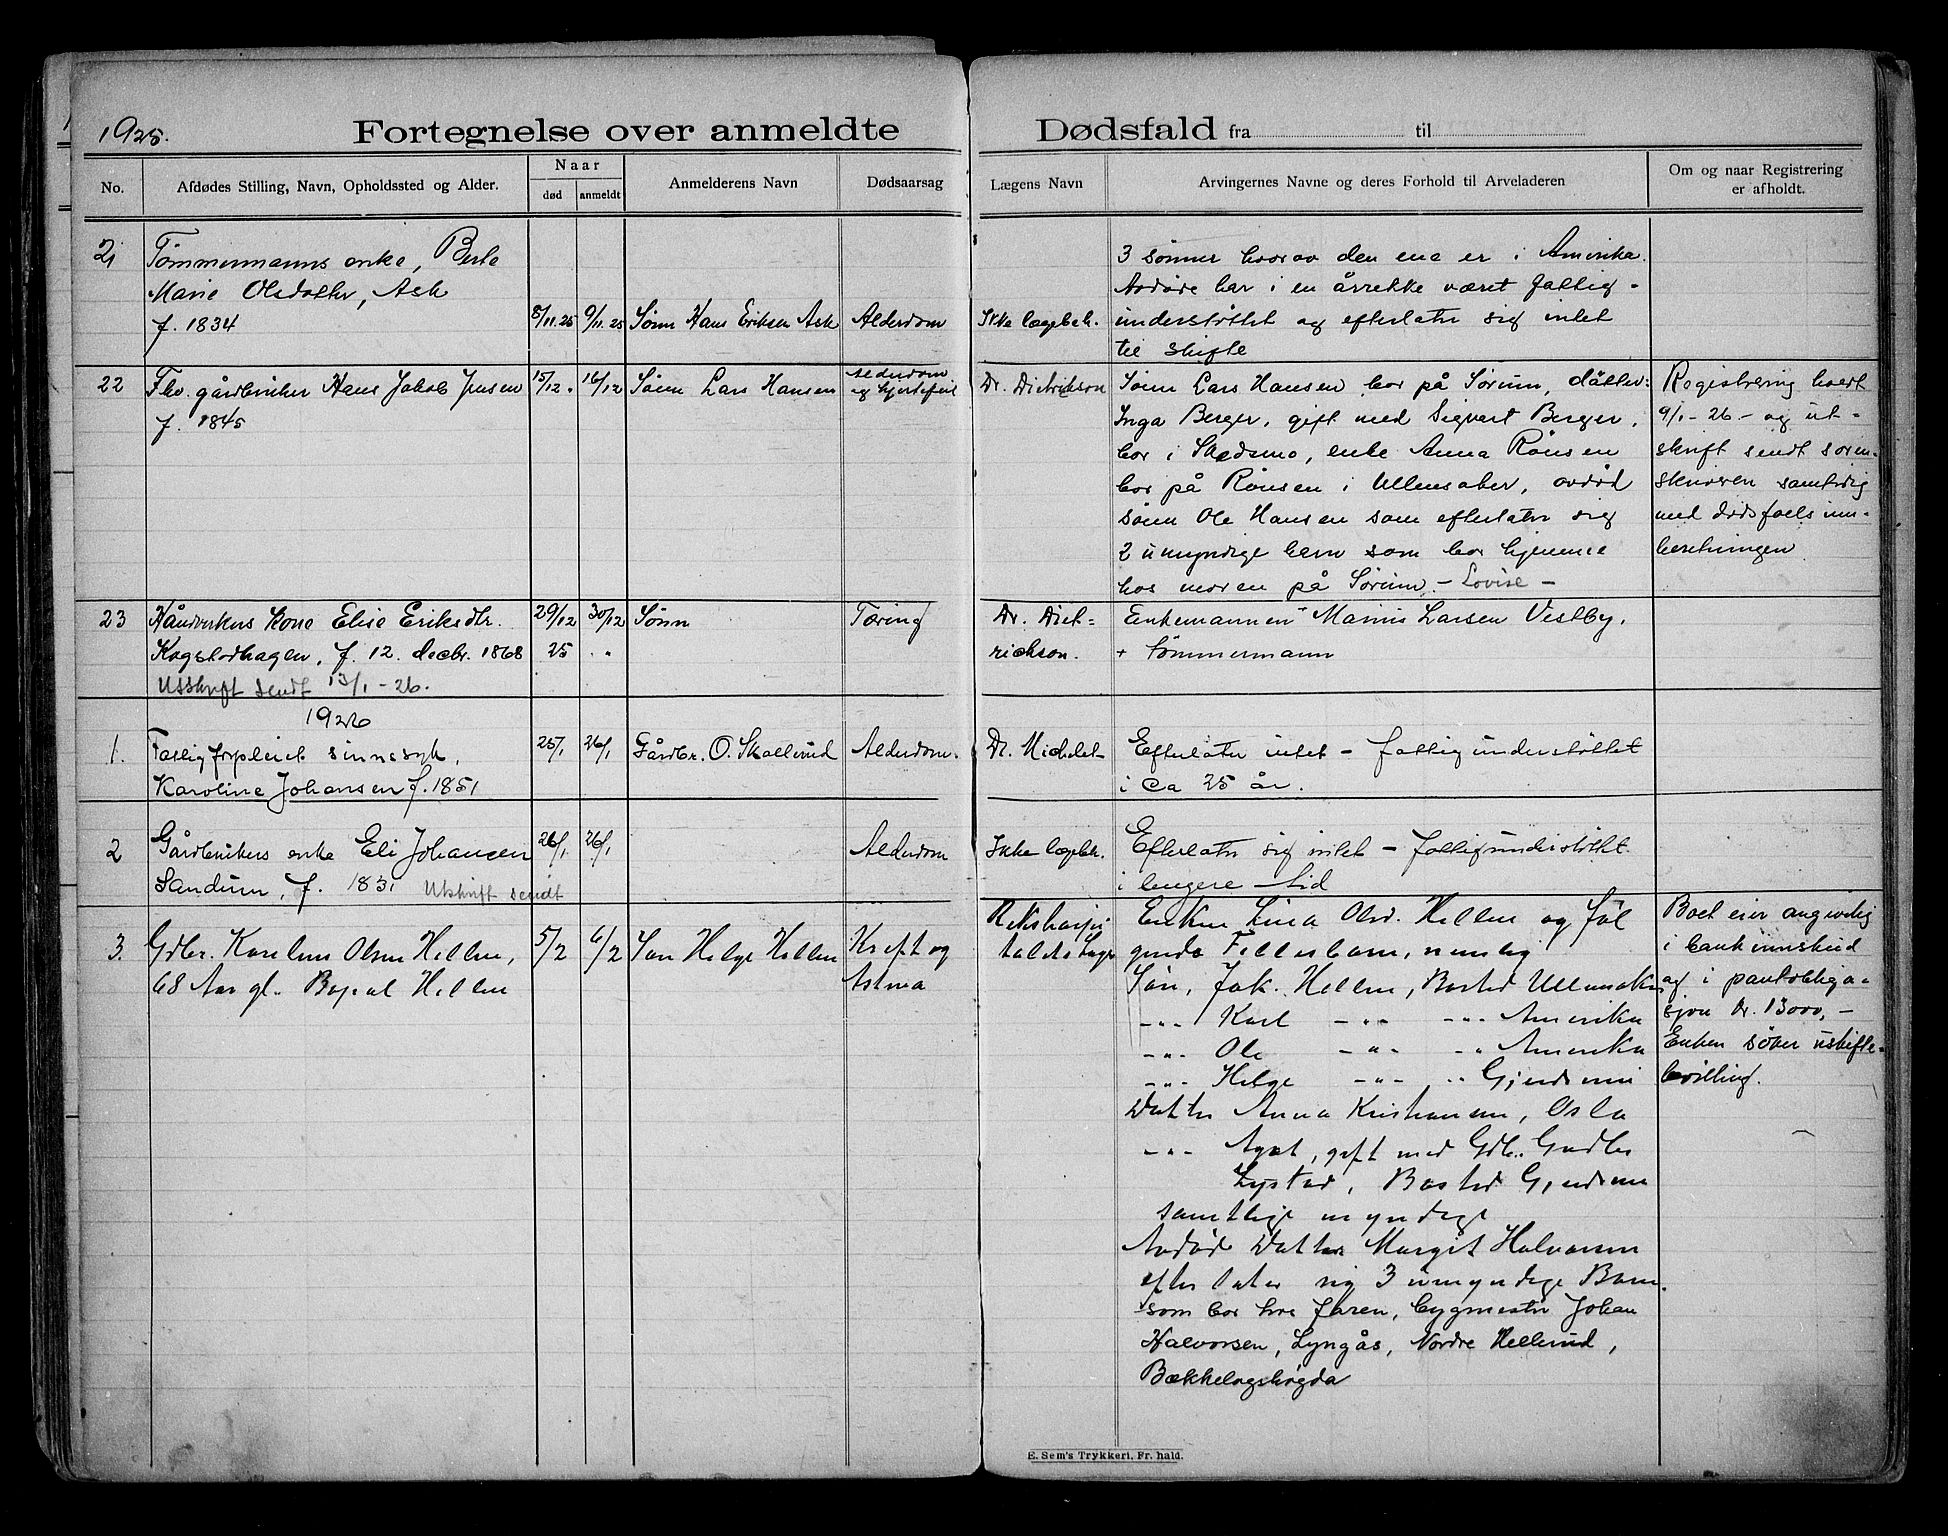 1925.
Fortegnelse over anmeldte Dødsfald fra til
No.
Afdødes Stilling, Navn, Opholdssted og Alder.
Naar
død
anmeldt
Anmelderens Navn
Dødsaarsag
Lægens Navn
Arvingernes Navne og deres Forhold til Arveladeren
Om og naar Registrering
er afholdt.
21
Tømmermanns enke, Berte
Marie Olsdatter, Ask
f. 1834
8/11.25
9/11.25
Sønn Hans Eriksen Ask
Alderdom
Ikke lægebeh.
3 sønner hvorav den ene er i Amerika.
Avdøde har i en årrekke været fattig-
understøttet og efterlater sig intet
til skifte
22
Fhv. gårdbruker Hans Jakob Jensen
f. 1845
15/12.
16/12
Sønn Lars Hansen
Alderdom
og hjertefeil
Dr. Dietrichson
Sønn Lars Hansen bor på Sørum, datter:
Inga Berger, gift med Sigvart Berger,
bor i Skedsmo, enke Anna Rønsen
bor på Rønsen i Ullensaker, avdød
sønn Ole Hansen som efterlater sig
2 umyndige barn som bor hjemme
hos moren på Sørum. - Lovise -
Registrering holdt
9/1-26 - og ut-
skrift sendt soren-
skriveren samtidig
med dødsfaldsinn-
beretningen
23
Håndverkers kone Elise Eriksdtr.
Kogstadhagen, f. 12. decbr. 1868
Utskrift sendt 13/1-26.
29/12
25
30/12
Sønn
Tæring
Dr. Diet-
richson.
Enkemannen Marius Larsen Vestby,
+ tømmermann
1926
1.
Fattigforpleiet sinnssyk,
Karoline Johansen f. 1851
25/1
26/1
Gårdbr. O. Skallerud
Alderdom.
Dr. Michelet
Efterlater intet - fattigunderstøttet
i ca 25 år.
2
Gårdbrukers enke Eli Johansen
Sandum, f. 1831 Utskrift sendt
26/1.
26/1
Alderdom
Ikke lægebeh.
Efterlater sig intet - fattigunderstøttet
i lengere tid
3.
Gdbr. Karelius Olsen Hellen,
68 Aar gl. Bopæl Hellen
5/2
6/2
Søn Helge Hellen
Kreft og
Astma
Rikshospi
talets Læge
Enken Lina Olsd. Hellen og føl
gende Fellesbarn, nemlig
Søn, Jak. Hellen, Bosted Ullensaker
-"- Karl -"- -"- Amerika
-"- Ole -"- -"- Amerika
-"- Helge -"- " Gjerdrum
Datter Anna Kristiansen, Oslo
-"- Agot, gift med Gdbr. Gudbr
Lystad, Bosted Gjerdrum
samtlige myndige
Avdød Datter Margit Halvorsen
efterlater sig 3 umyndige Barn
som bor hos faren, bygmester Johan
Halvorsen, Lyngås, Nordre Hellerud,
Bækkelagshøgda
Boet eier angivelig
i bankinnskud
og i pantobliga-
sjon kr. 13000,-
Enken søker uskifte-
bevilling.
E. Sem's Trykkeri, Fr. hald.